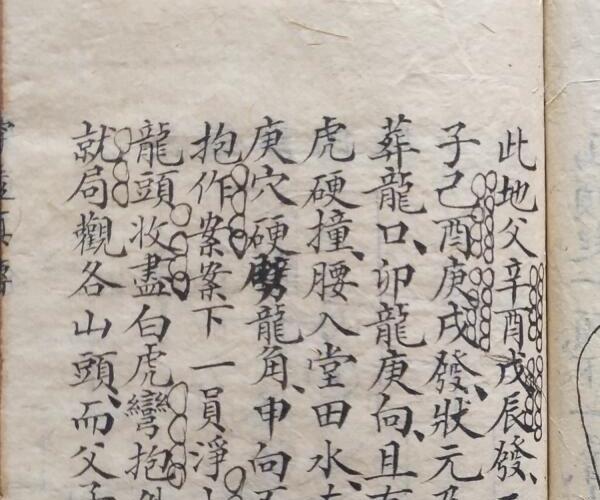 此地父辛酉戊辰發
子己酉庚戌發、狀元
葬龍口、卯龍庚向、且
虎硬撞、腰入堂田水
庚穴硬劈龍角、申向
抱作案案下一員淨
龍頭收盡白虎彎抱
就局觀各山頭、而父子